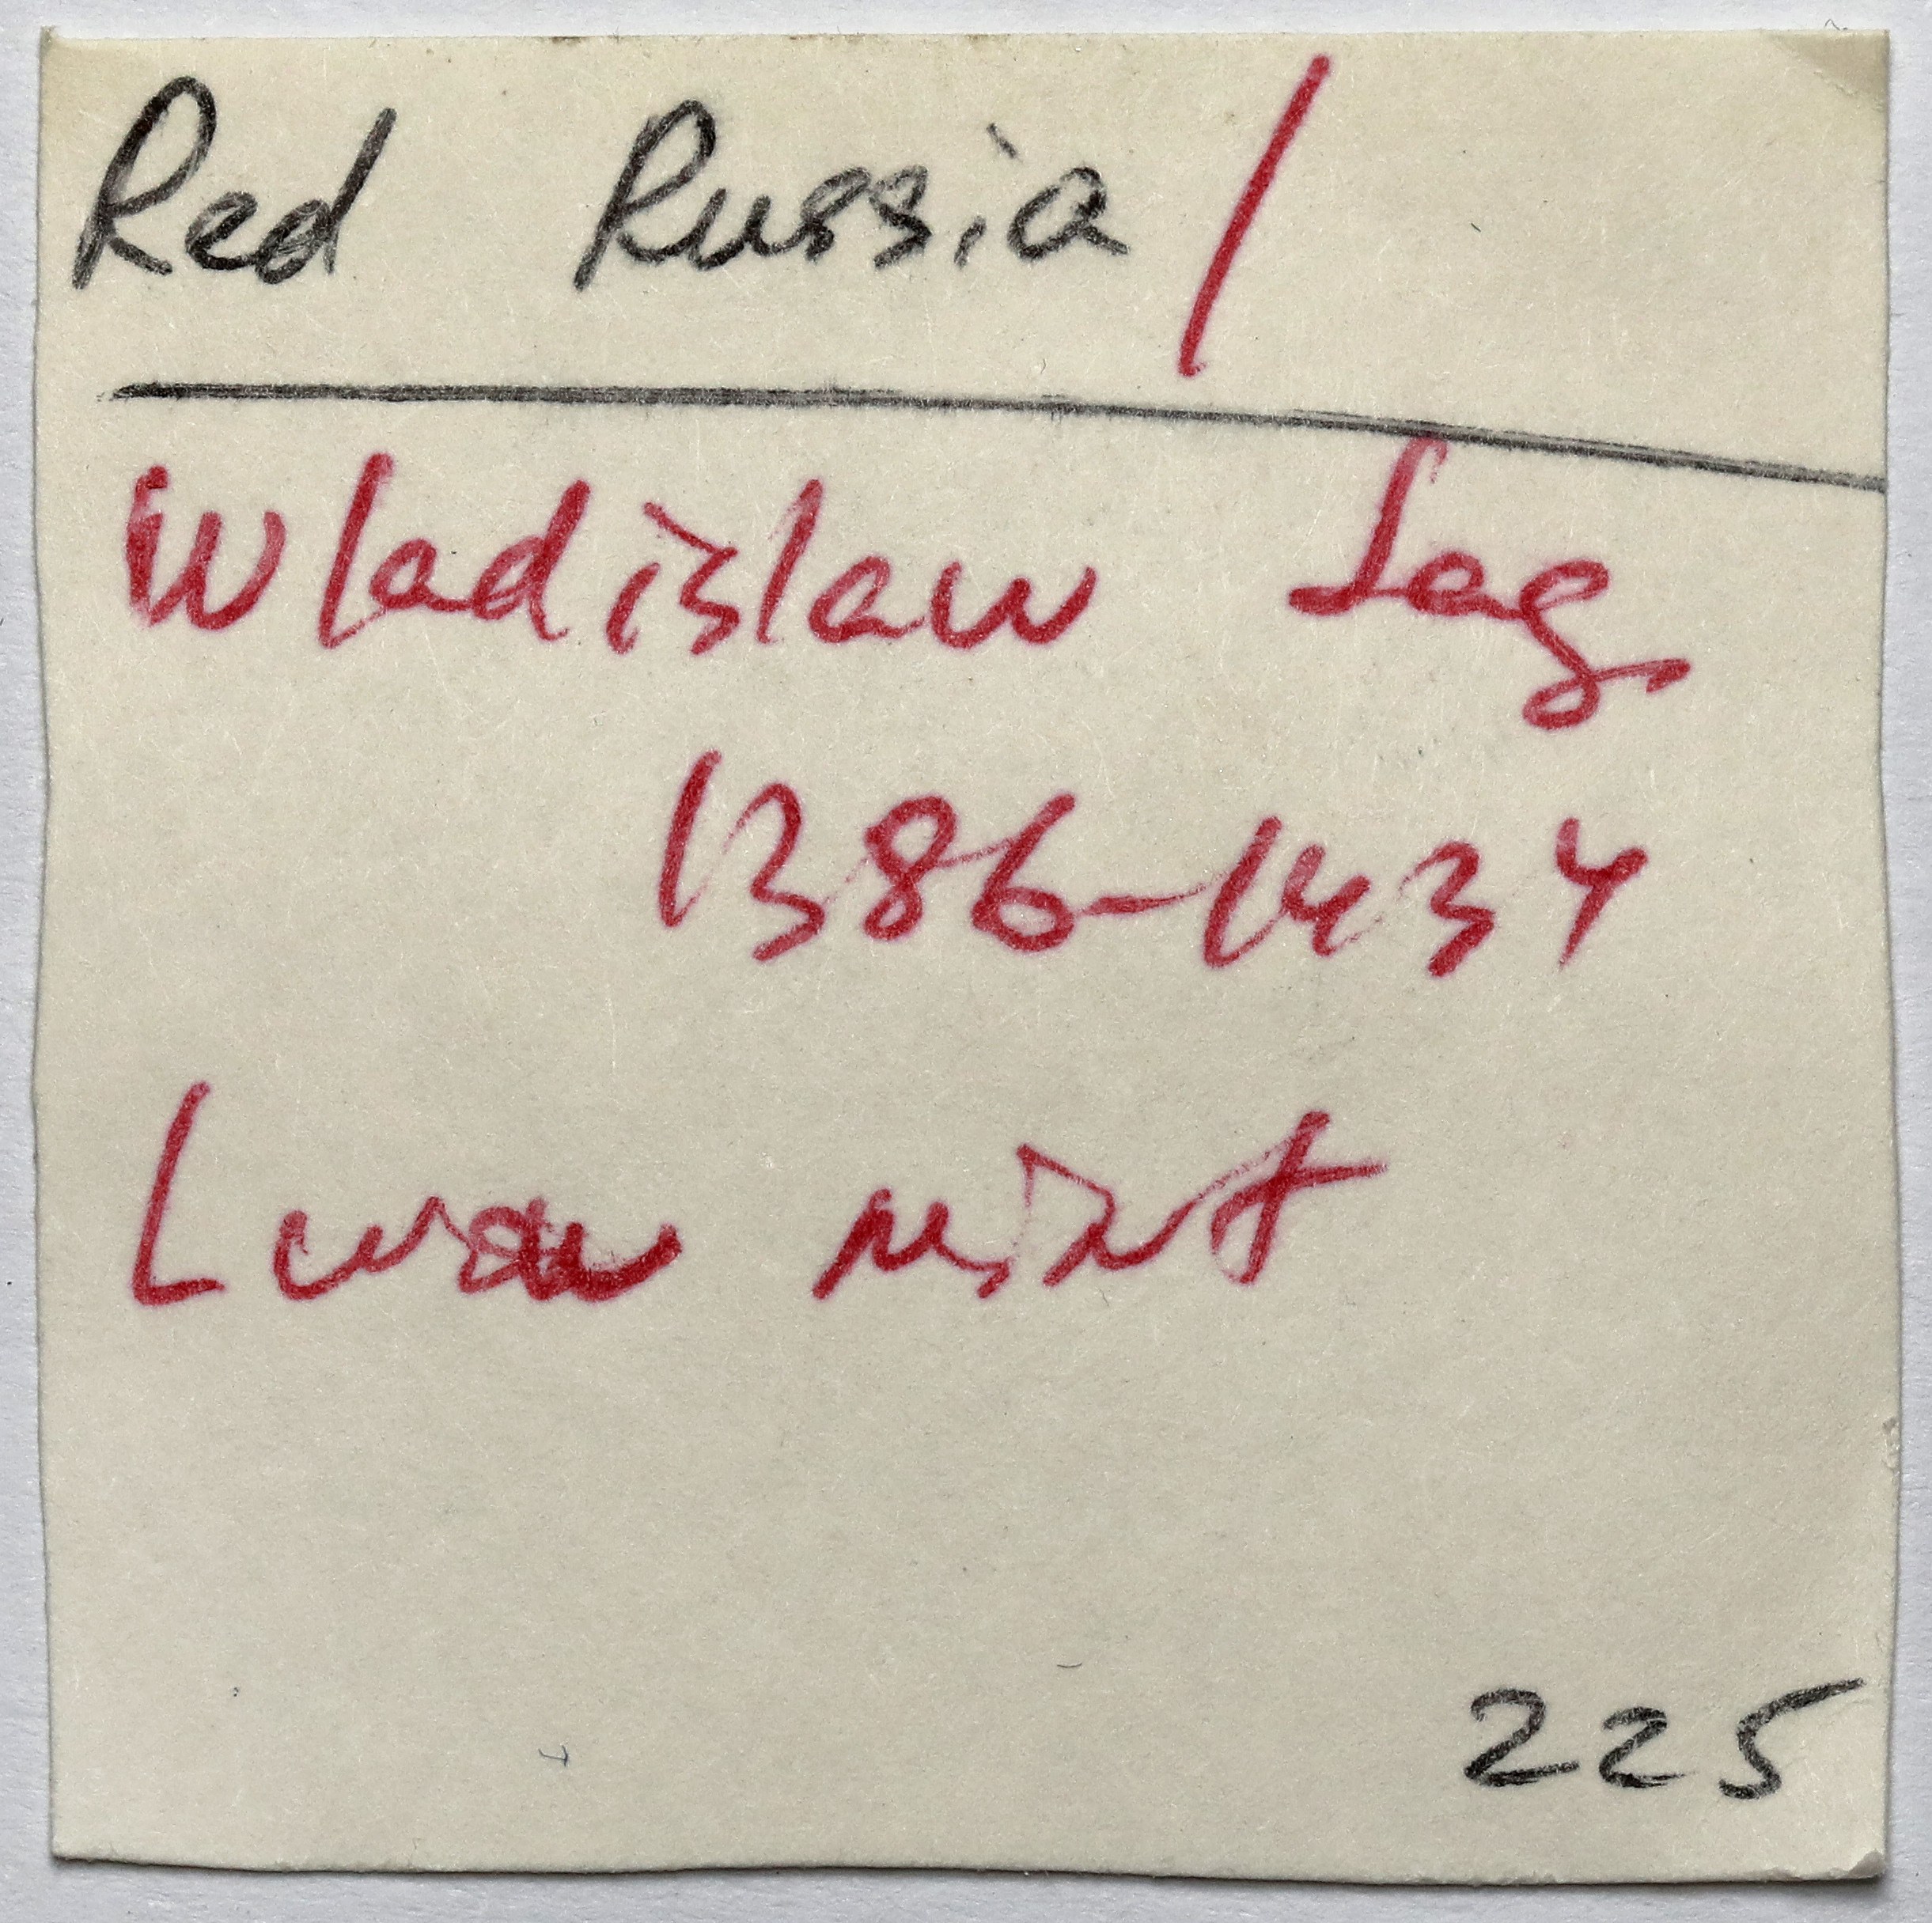 Red Russia /
Wladislaw Jag.
1386-1434
Lwow mint
225